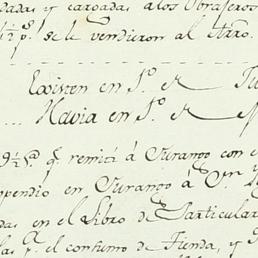 dadas y cargadas a los Obrajeros
1/2 p.s se le vendieron al Itrro.
Existen en S.o de
Havia en S.o de
9 1/2 q.e remití á Durango con e
ppendio en Durango á
das en el Libro de Particular
las p.r el consumo de Tienda, y